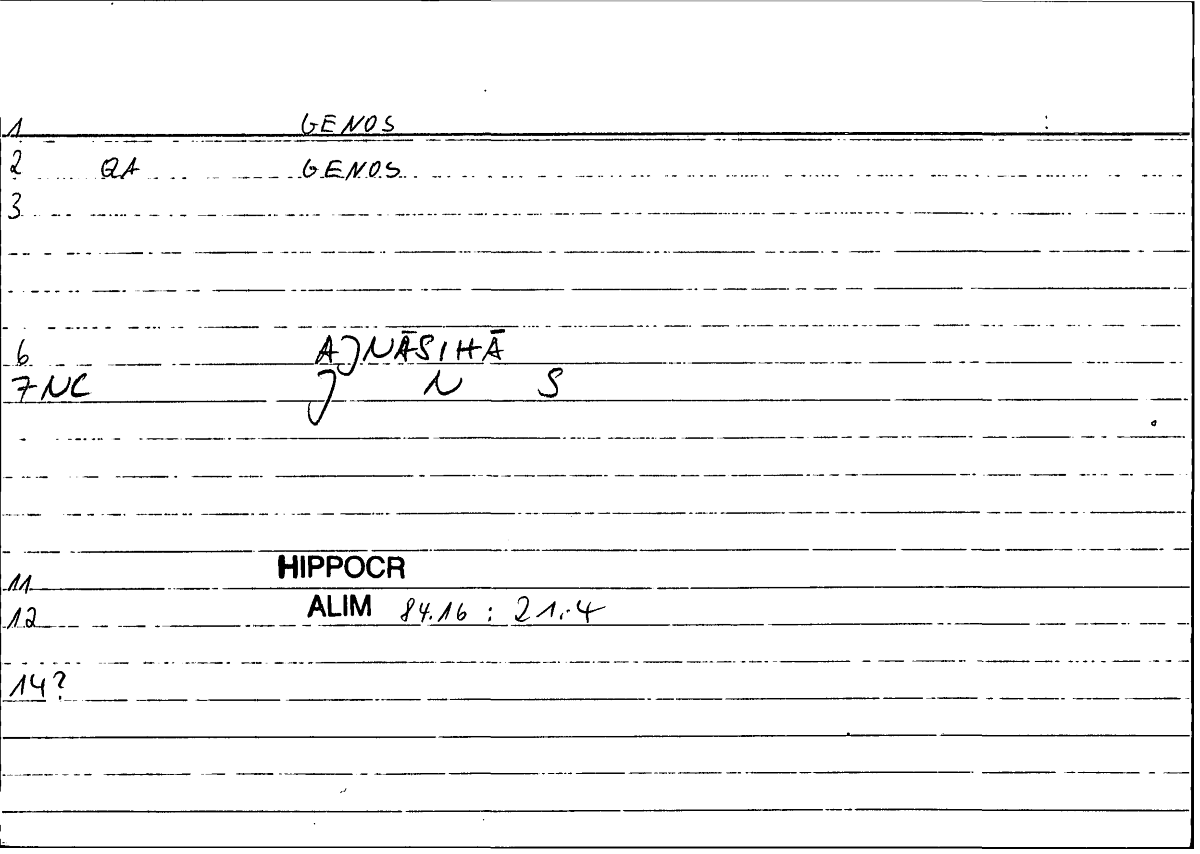 1 GENOS
2 QA GENOS
3
6 AJNĀSIHĀ
7 NC J N S
11 HIPPOCR
12 ALIM 84.16 : 21.4
14?